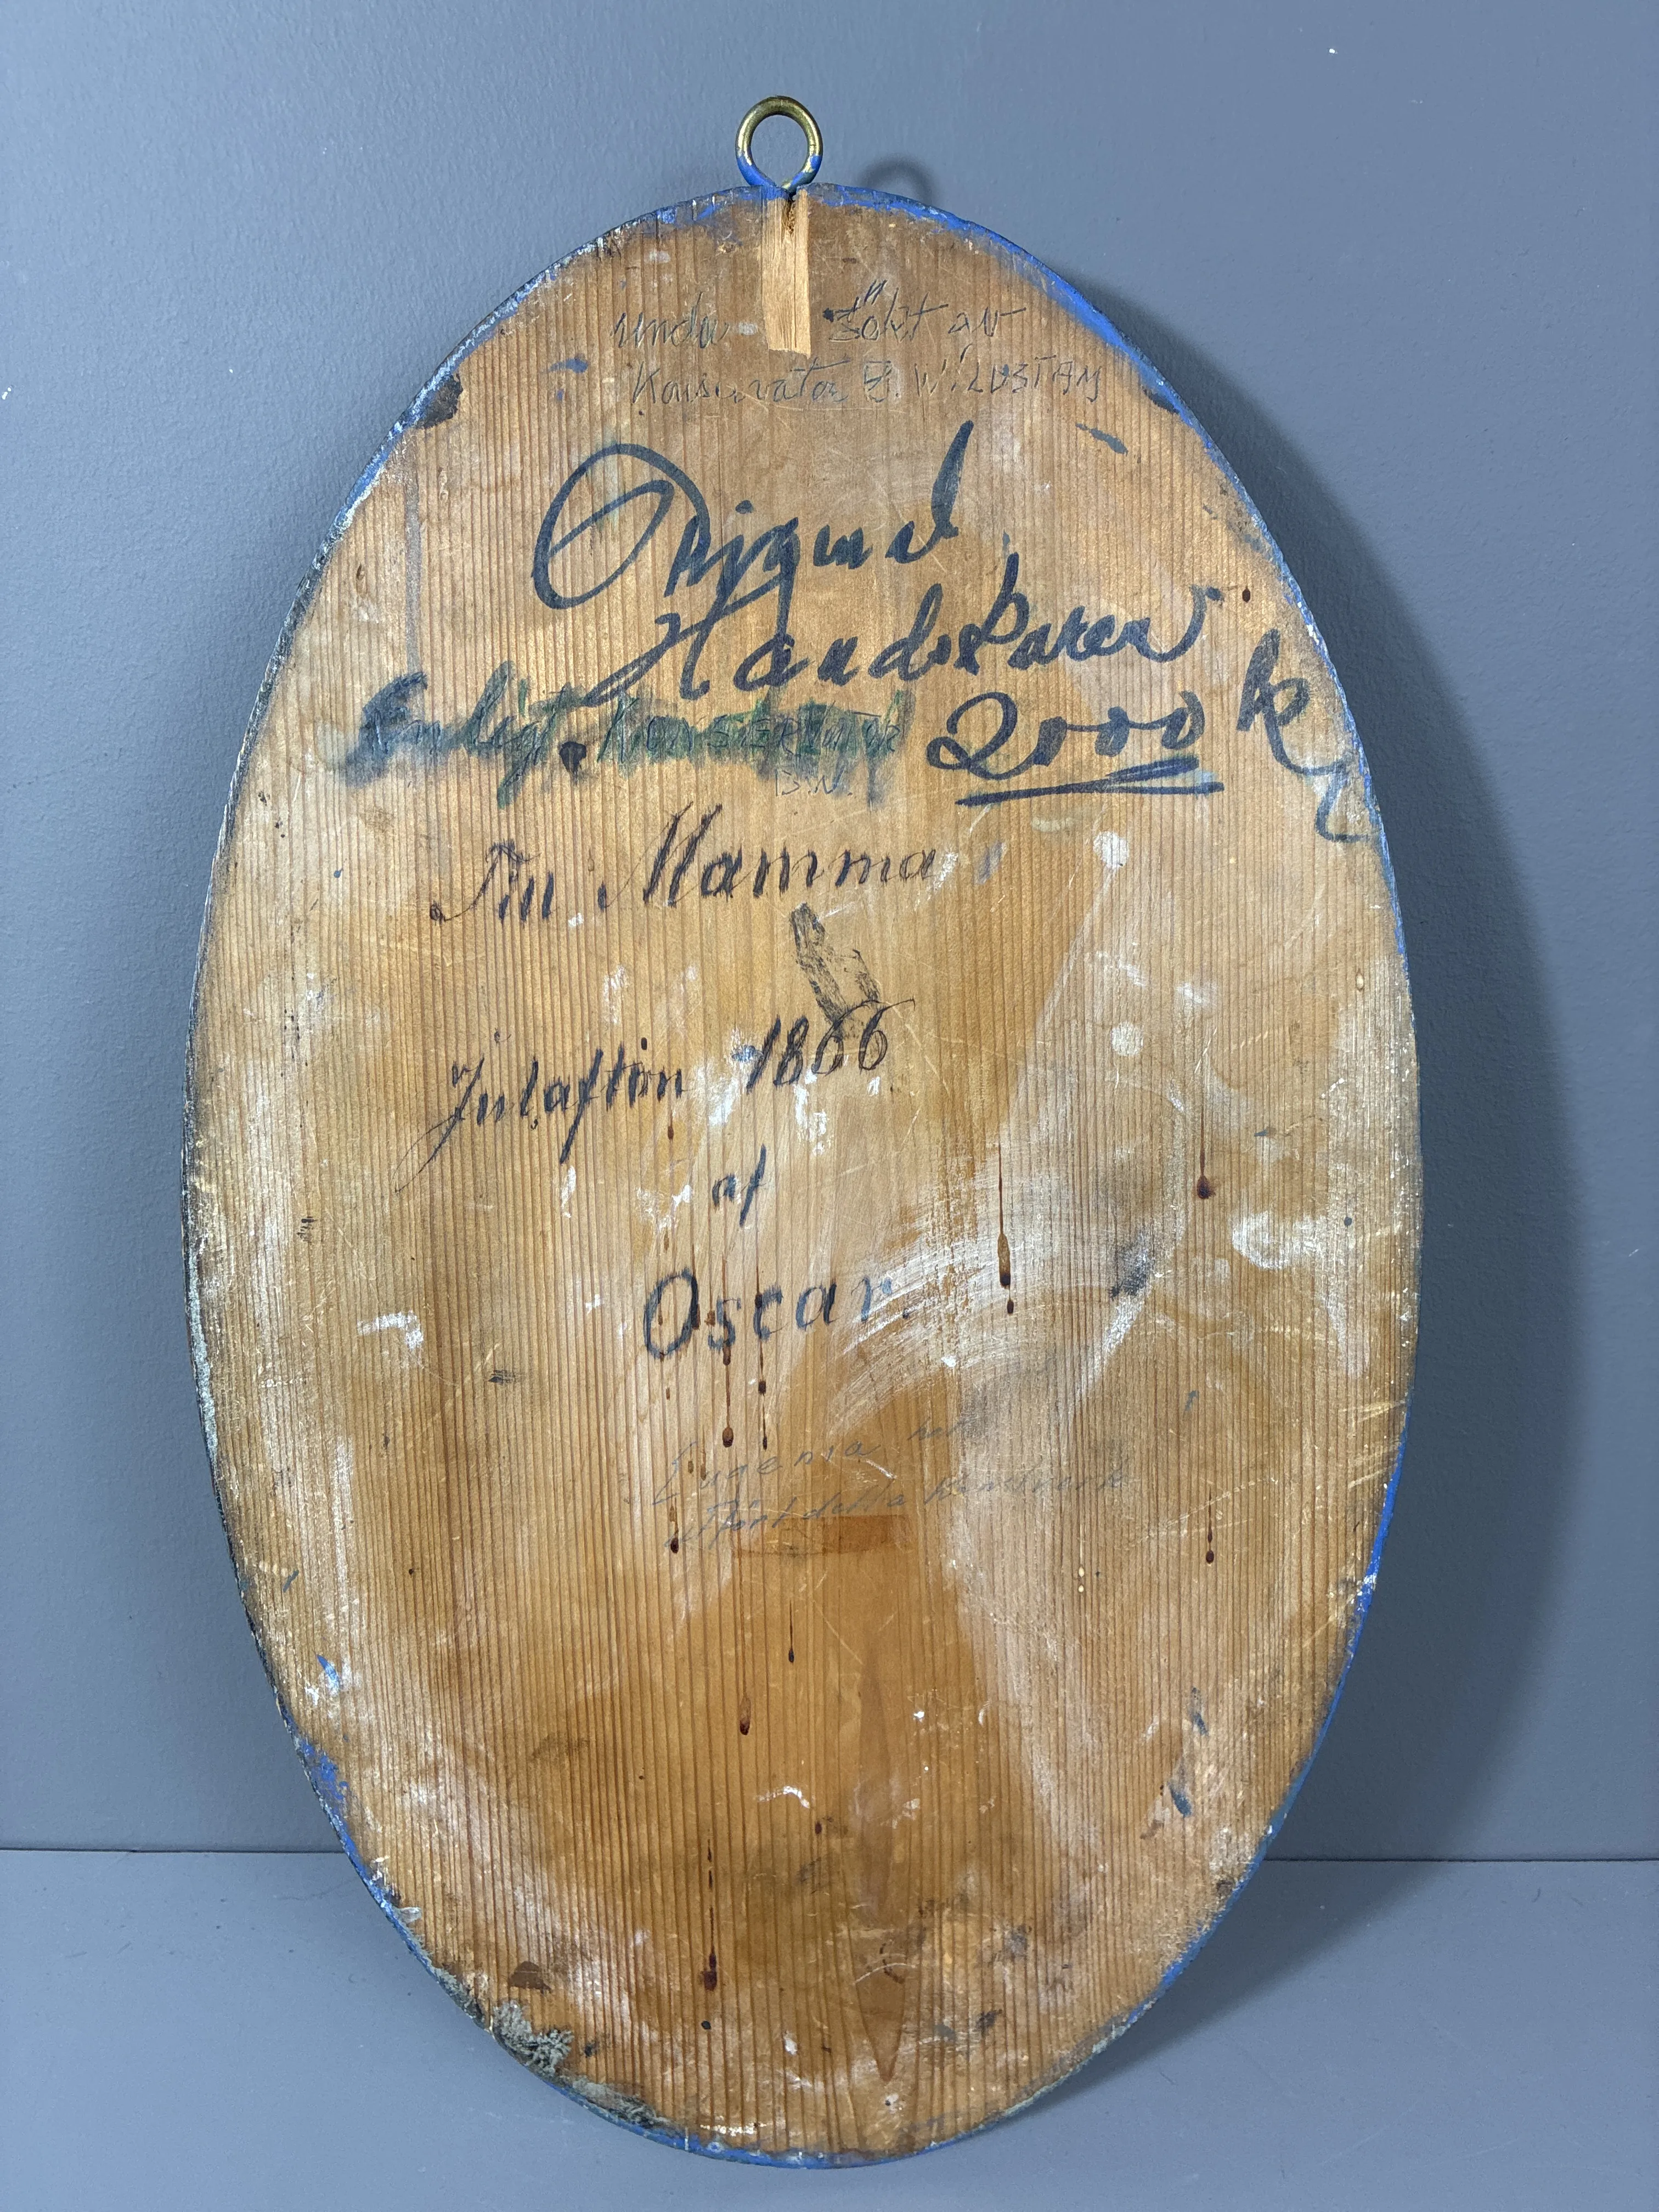 unde sökt av
Konservator B. WiLDSTAM
Original
Handskuren
Enligt Konservator 2000 kr
B.W.
Till Mamma
Julafton 1866
af
Oscar.
Eugenia
utfört detta konstverk